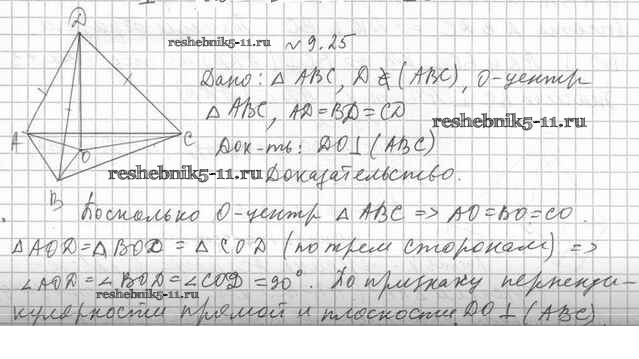 D
reshebnik5-11.ru
№ 9.25
Дано: △ ABC, D ∉ (ABC), O-центр
△ ABC, AD=BD=CD
reshebnik5-11.ru
A
C
Док-ть: DO⊥(ABC)
O
reshebnik5-11.ru
Доказательство.
B
Поскольку O-центр △ ABC => AO=BO=CO.
△AOD=△BOD=△COD (по трем сторонам) =>
∠AOD=∠BOD=∠COD=90°. По признаку перпенди-
reshebnik5-11.ru
кулярности прямой и плоскости DO⊥(ABC)